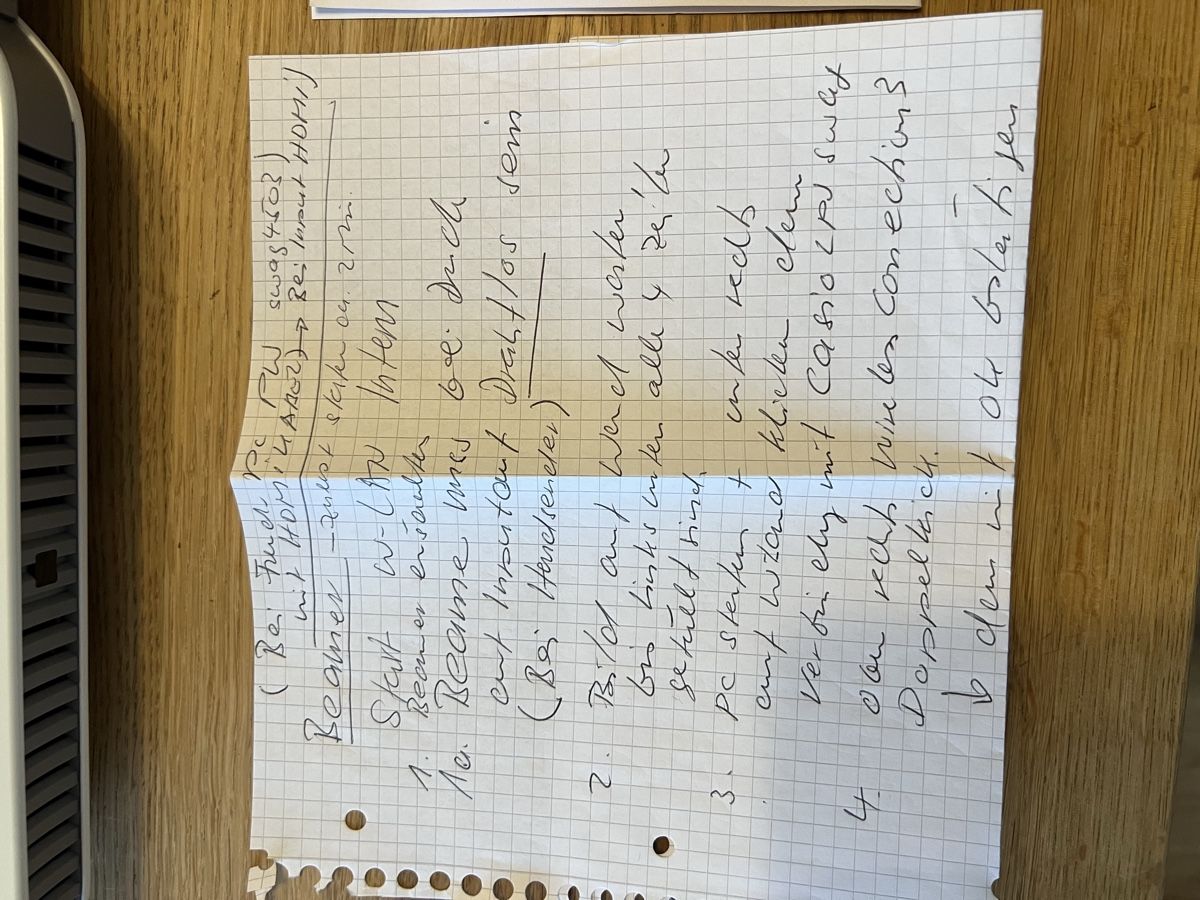 ( Bei Fried. PC PW swag4503)
mit HDMi → Bei Input HDMi)
Beamer – zuerst ca. 2 min.
Start W-LAN Intern
1. Beamer einschalten
1a. Beame muss gedruck
auf Input auf Drahtlos sein
(Bei Handsender)
2. Bild auf Wand warten
bis links unten alle 4 Zeilen
gefüllt sind.
3. PC starten unten rechts
auf Wizard klicken dann
Verbindung mit Casio LPJ swag
4. oben rechts wireless Conection 3
Doppelklick.
↳ dann mit OK bestätigen